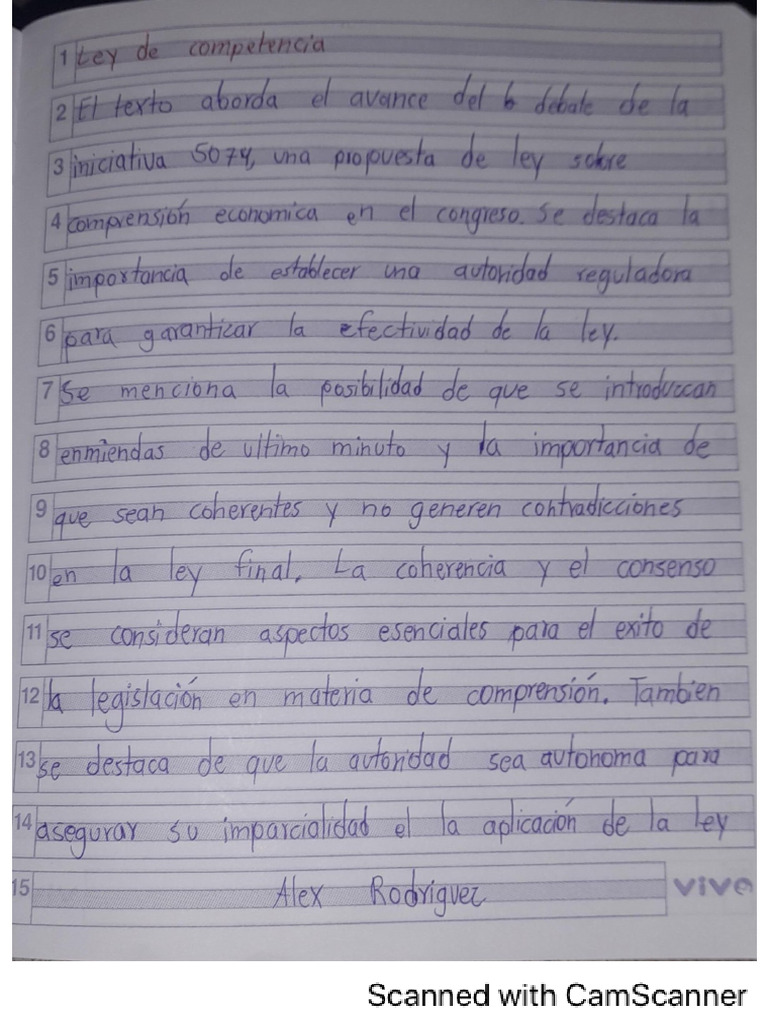 1 Ley de competencia
2 El texto aborda el avance del debate de la
3 iniciativa 5074, una propuesta de ley sobre
4 comprensión economica en el congreso. Se destaca la
5 importancia de establecer una autoridad reguladora
6 para garanticar la efectividad de la ley.
7 Se menciona la posibilidad de que se introduzcan
8 enmiendas de ultimo minuto y la importancia de
9 que sean coherentes y no generen contradicciones
10 en la ley final. La coherencia y el consenso
11 se consideran aspectos esenciales para el exito de
12 la legislación en materia de comprensión. Tambien
13 se destaca de que la autoridad sea autonoma para
14 asegurar su imparcialidad el la aplicación de la ley
15 Alex Rodriguez
vive
Scanned with CamScanner